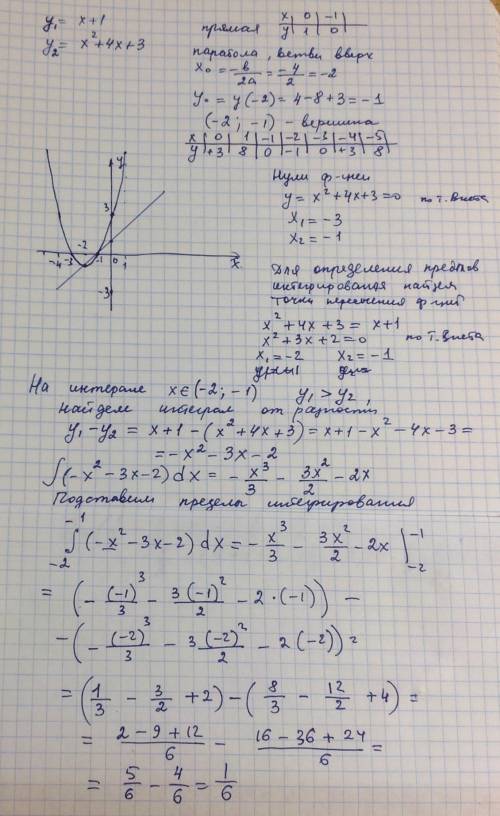 y₁ = x+1
y₂ = x²+4x+3
прямая x | 0 | -1
y | 1 | 0
парабола, ветви вверх
x₀ = -в/2a = -4/2 = -2
y₀ = y(-2) = 4-8+3 = -1
(-2; -1) - вершина
x | 0 | 1 | -1 | -2 | -3 | -4 | -5
y | +3 | 8 | 0 | -1 | 0 | +3 | 8
y
3
-4 -3 -2 -1 0 1 x
-3
Нули ф-ции
y = x²+4x+3=0 по т. Виета
x₁ = -3
x₂ = -1
Для определения пределов
интегрирования найдем
точки пересечения ф-ций
x²+4x+3 = x+1
x²+3x+2=0 по т. Виета
x₁=-2 x₂=-1
На интервале x∈(-2; -1) y₁>y₂,
найдем интеграл от разности
y₁-y₂ = x+1-(x²+4x+3) = x+1-x²-4x-3 =
= -x²-3x-2
∫(-x²-3x-2)dx = -x³/3 - 3x²/2 - 2x
Подставим пределы интегрирования
-1
∫(-x²-3x-2)dx = -x³/3 - 3x²/2 - 2x |-1
-2 -2
= (-(-1)³/3 - 3(-1)²/2 - 2·(-1)) -
-(-(-2)³/3 - 3(-2)²/2 - 2(-2)) =
= (1/3 - 3/2 + 2) - (8/3 - 12/2 + 4) =
= (2-9+12)/6 - (16-36+24)/6 =
= 5/6 - 4/6 = 1/6